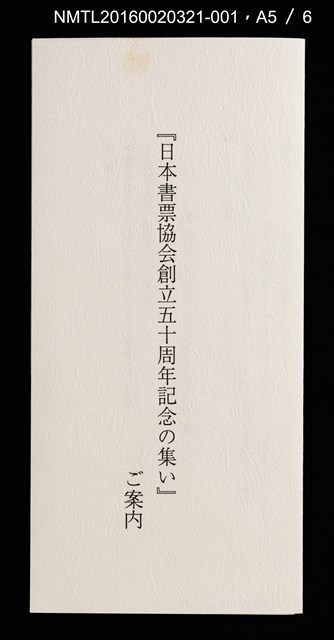 NMTL20160020321-001，A5 / 6
『日本書票協会創立五十周年記念の集い』
ご案内